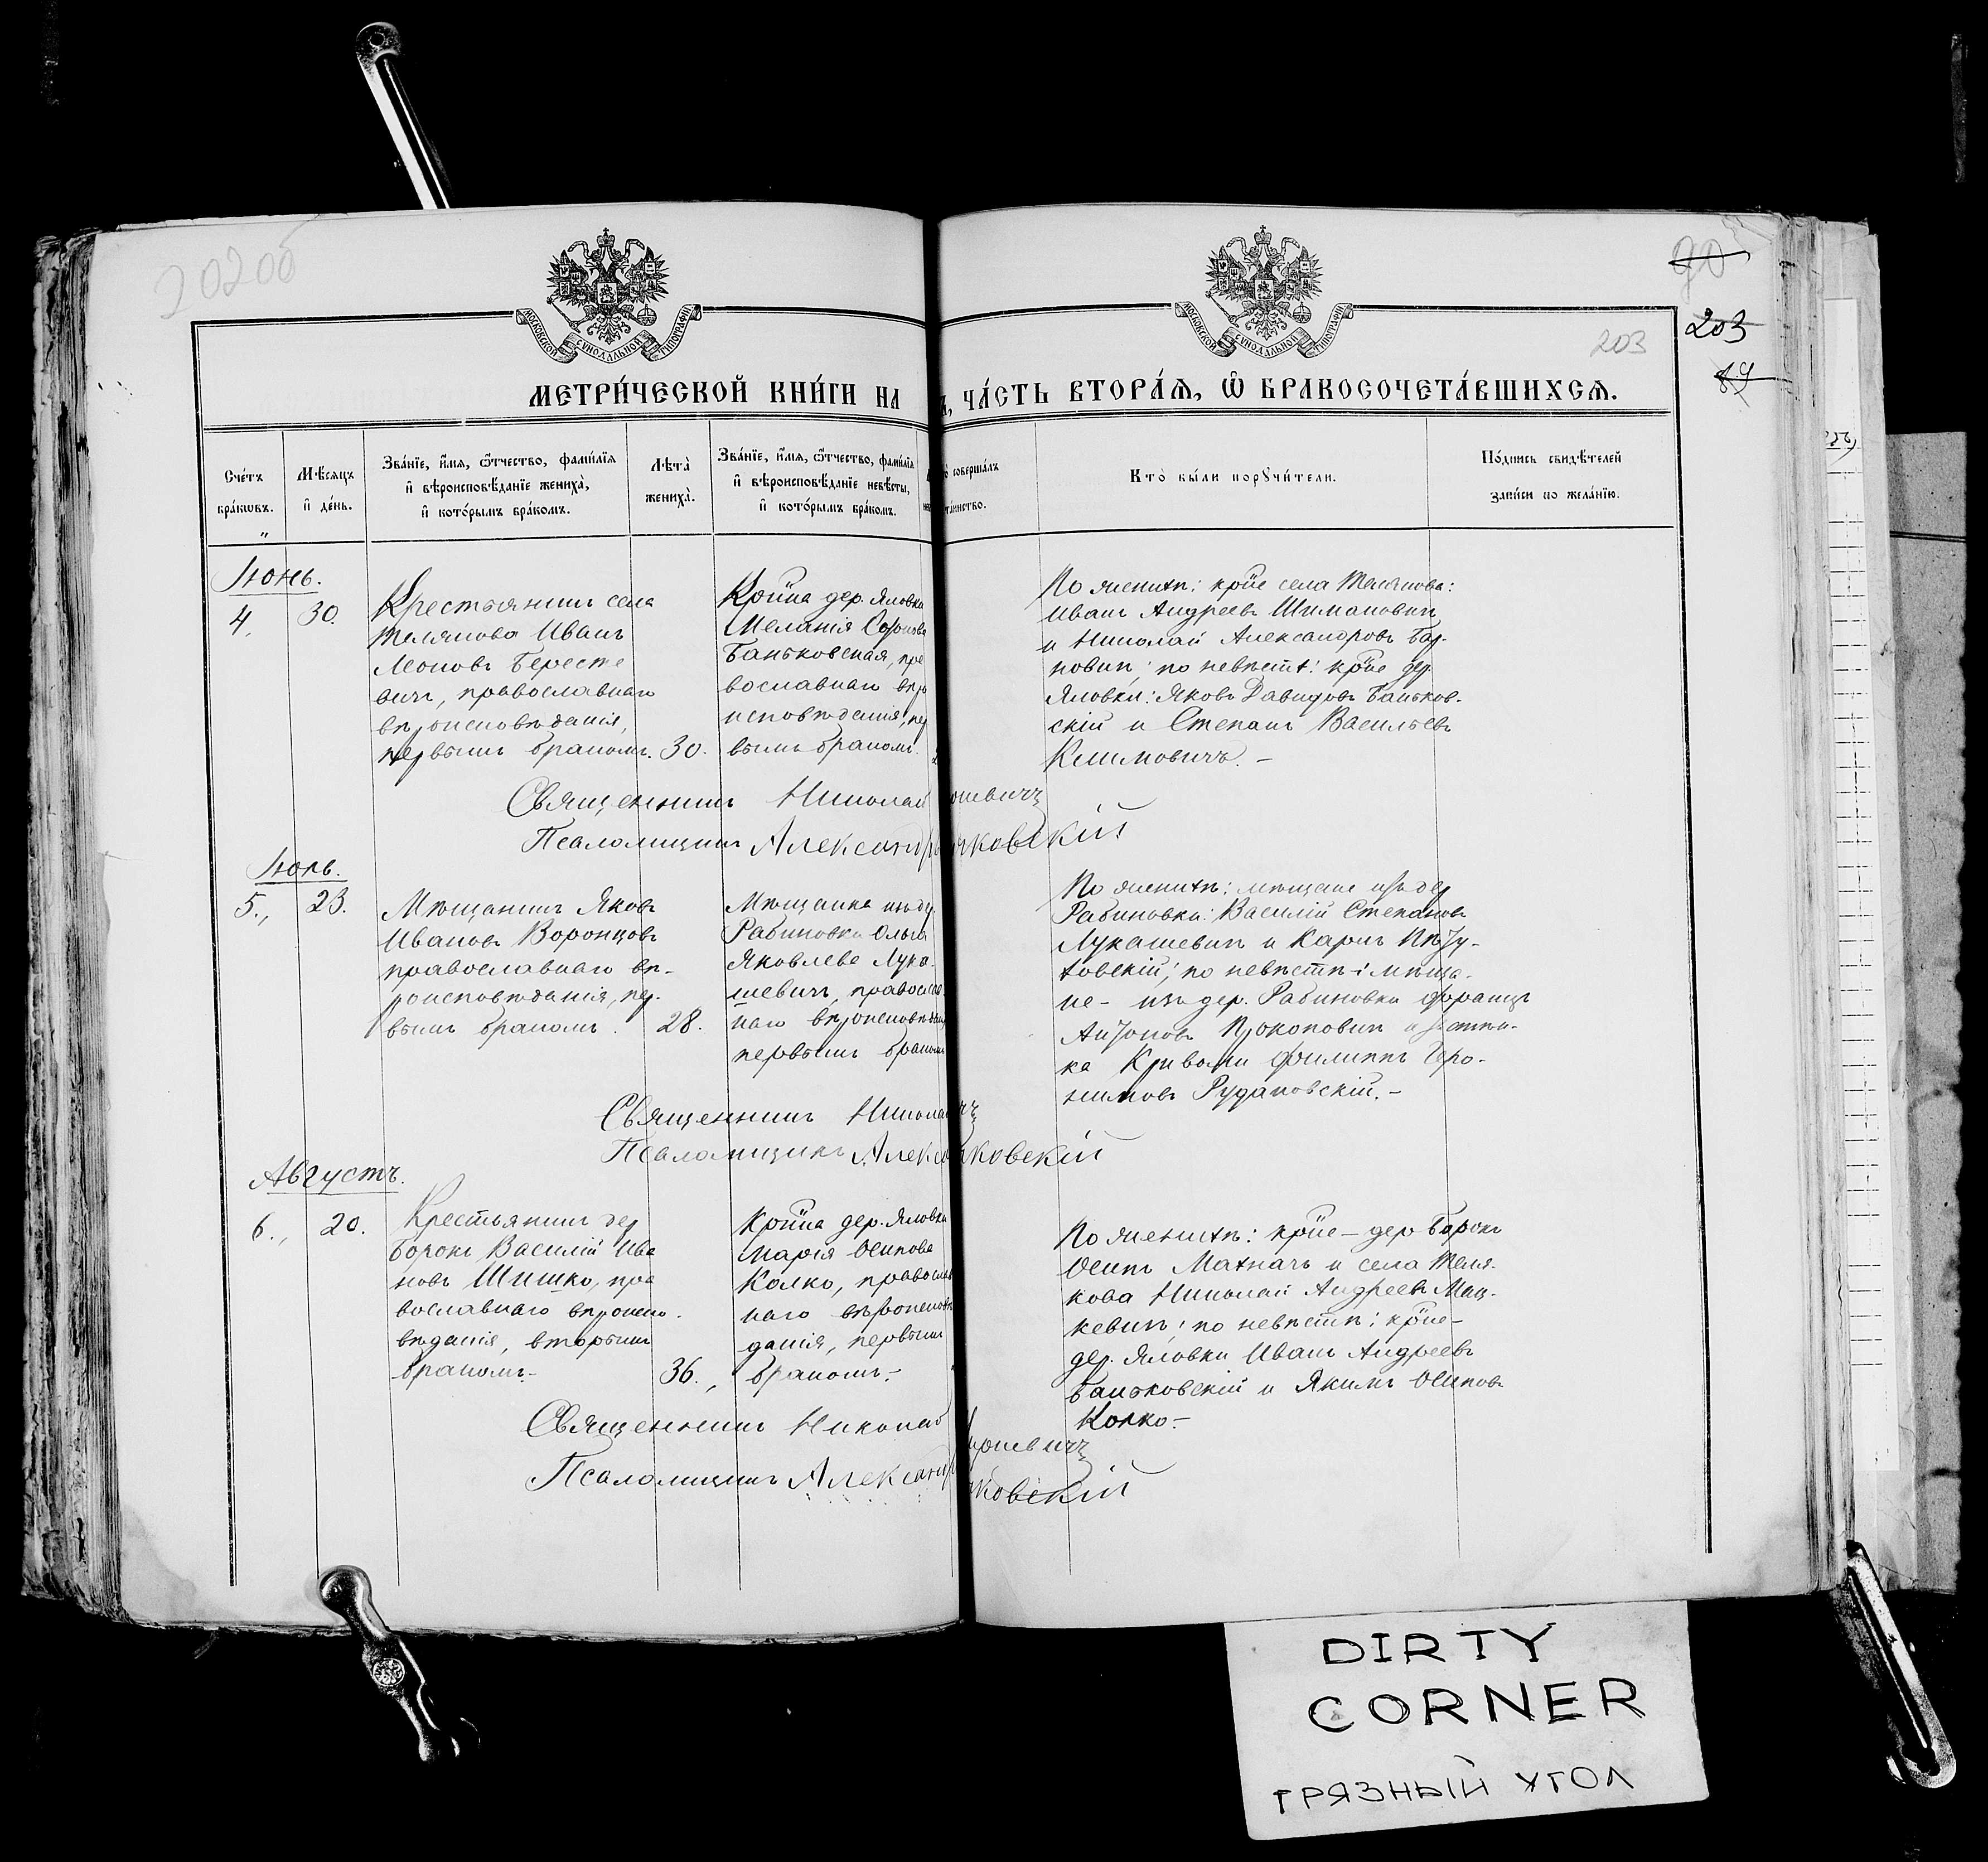 202об
90
203
203
89
МОСКОВСКОЙ СѴНОДАЛЬНОЙ ТИПОГРАФІИ
МОСКОВСКОЙ СѴНОДАЛЬНОЙ ТИПОГРАФІИ
МЕТРИ́ЧЕСКОЙ КНИ́ГИ НА
ЧА́СТЬ ВТОРА́Ѧ, Ѽ БРАКОСОЧЕТА́ВШИХСѦ.
Сче́тъ бра́кѡвъ.
Мѣ́сѧцъ и҆ де́нь.
Зва́нїе, и҆́мѧ, ѻ҆́тчество, фами́лїѧ
и҆ вѣроисповѣ́данїе жениха̀,
и҆ кото́рымъ бра́комъ.
Лѣ́та̀ жениха̀.
Зва́нїе, и҆́мѧ, ѻ҆́тчество, фами́лїѧ
и҆ вѣроисповѣ́данїе невѣ́сты,
и҆ кото́рымъ бра́комъ.
соверша́лъ
та́инство.
Кто̀ бы́ли порꙋчи́тели.
По́дпись свидѣ́телей
за́писи по жела́нїю.
Іюнь.
4. 30.
Крестьянинъ села
Телякова Иванъ
Леоновъ Бересне
вичъ, православнаго
вѣроисповѣданія,
первымъ бракомъ. 30.
Кр̃нка дер. Яловки
Меланія
Баньковская, пра
вославнаго вѣро
исповѣданія, пер
вымъ бракомъ.
По женихѣ: кр̃не села Телякова:
Иванъ Андреевъ Шимановичъ
и Николай Александровъ Бар-
новичъ; по невѣстѣ: кр̃не дер.
Яловки: Яковъ Давидовъ Баньков-
скій и Степанъ Васильевъ
Климовичъ. –
Священникъ Николай
Псаломщикъ Александръ
Іюль.
5., 23.
Мѣщанинъ Яковъ
Ивановъ Воронцовъ
православнаго вѣ-
роисповѣданія, пер-
вымъ бракомъ. 28.
Мѣщанка изъ де.
Рабиновки Ольга
Яковлева Лука-
шевичъ, православ
наго вѣроисповѣдан
первымъ бракомъ
По женихѣ: мѣщане изъ дер
Рабиновки: Василій Степановъ
Лукашевичъ и Карпъ
по невѣстѣ: мѣща-
не – изъ дер. Рабиновки Францъ
Антоновъ Прокоповичъ
ка Филиппъ Іеро-
нимовъ Рудаковскій. –
Священникъ Никола
Псаломщикъ Алек
Августъ.
6., 20.
Крестьянинъ дер
Борокъ Василій Ива
новъ Шишко, пра
вославнаго вѣроиспо-
вѣданія, вторымъ
бракомъ. 36.,
Кр̃нка дер. Яловки
Марія Осипова
Колко, православ
наго вѣроисповѣ
данія, первымъ
бракомъ. –
По женихѣ: кр̃не – дер Борокъ
Осипъ Махначъ и села Теля-
кова Николай Андреевъ Мац-
кевичъ; по невѣстѣ: кр̃не –
дер. Яловки Иванъ Андреевъ
Баньковскій и Якимъ Осиповъ
Колко. –
Священникъ Николай
Псаломщикъ Александр
DIRTY
CORNER
ГРЯЗНЫЙ УГОЛ